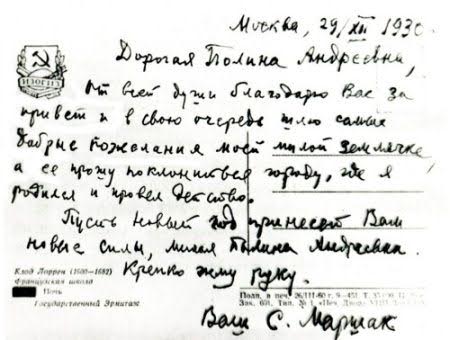 Москва, 29/XII 1930
Дорогая Полина Андреевна,
От всей души благодарю Вас за
привет и в свою очередь шлю самые
добрые пожелания моей милой землячке,
а ее прошу поклониться городу, где я
родился и провел детство.
Пусть Новый год принесет Вам
новые силы, милая Полина Андреевна.
Крепко жму руку.
Ваш С. Маршак
ИЗОГИЗ
Клод Лоррен (1600—1682)
Французская школа
Ночь
Государственный Эрмитаж
Подп. к печ. 26/III-60 г.